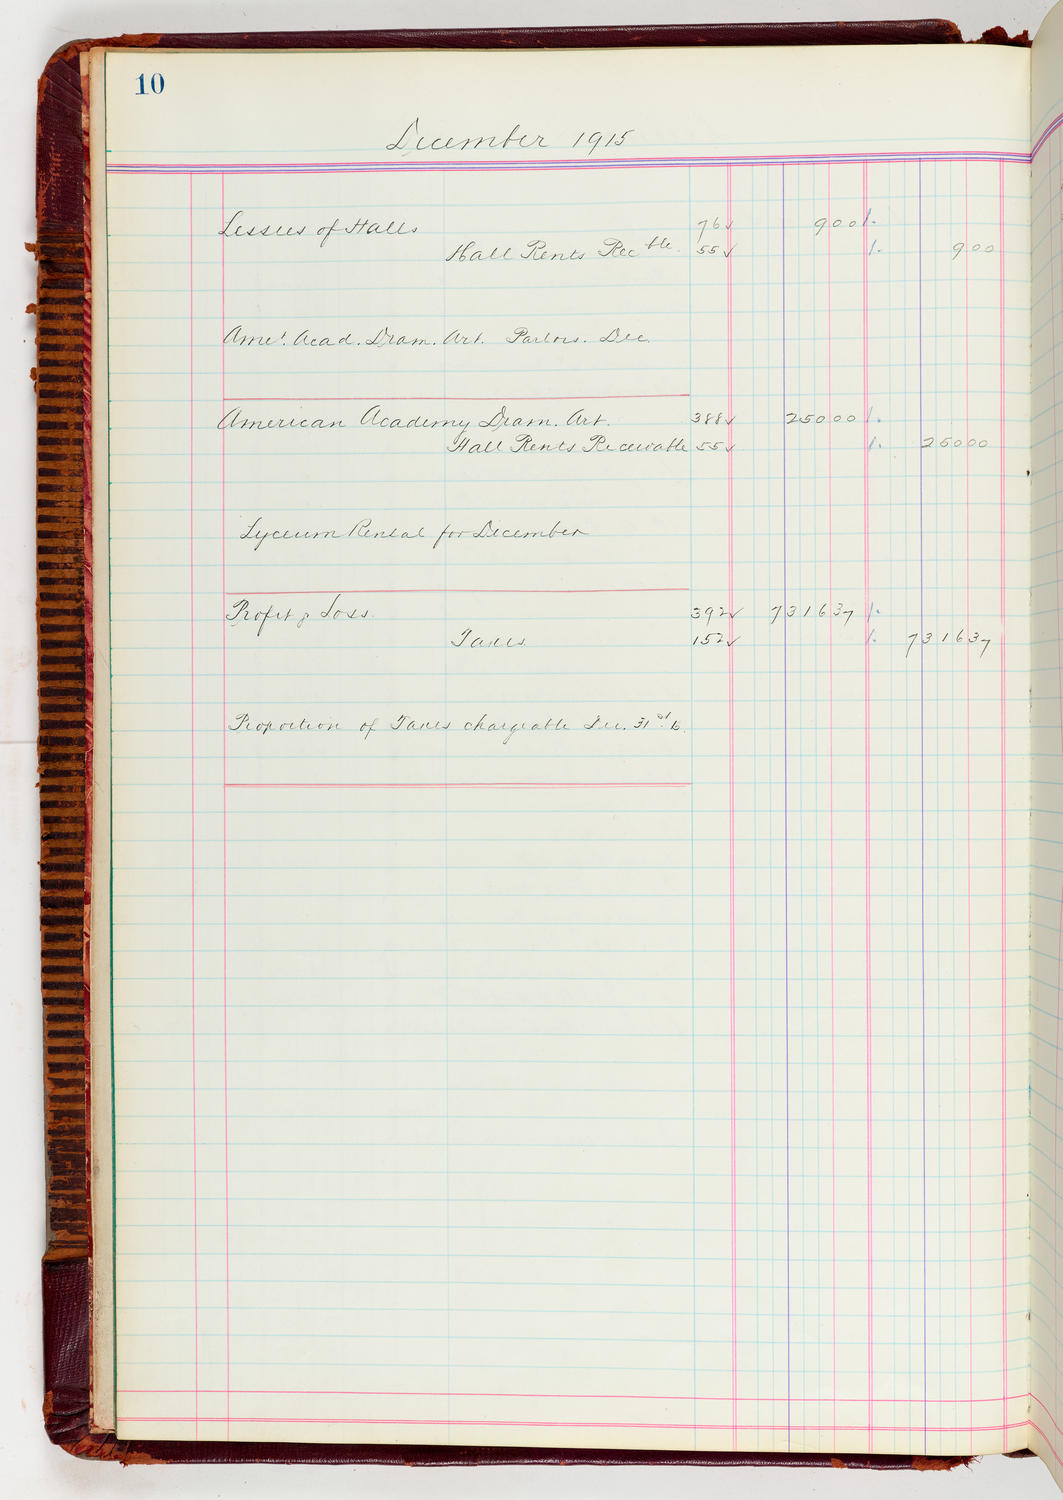 10
December 1915
Lessees of Halls 76✓ 900
Hall Rents Rec ble. 55✓ 900
Ame'. Acad. Dram. Art. Parlors. Dec.
American Academy Dram. Art. 388✓ 25000
Hall Rents Receivable 55✓ 25000
Lyceum Rental for December
Profit & Loss. 392✓ 731637
Taxes. 152✓ 731637
Proportion of Taxes chargeable Dec. 31st